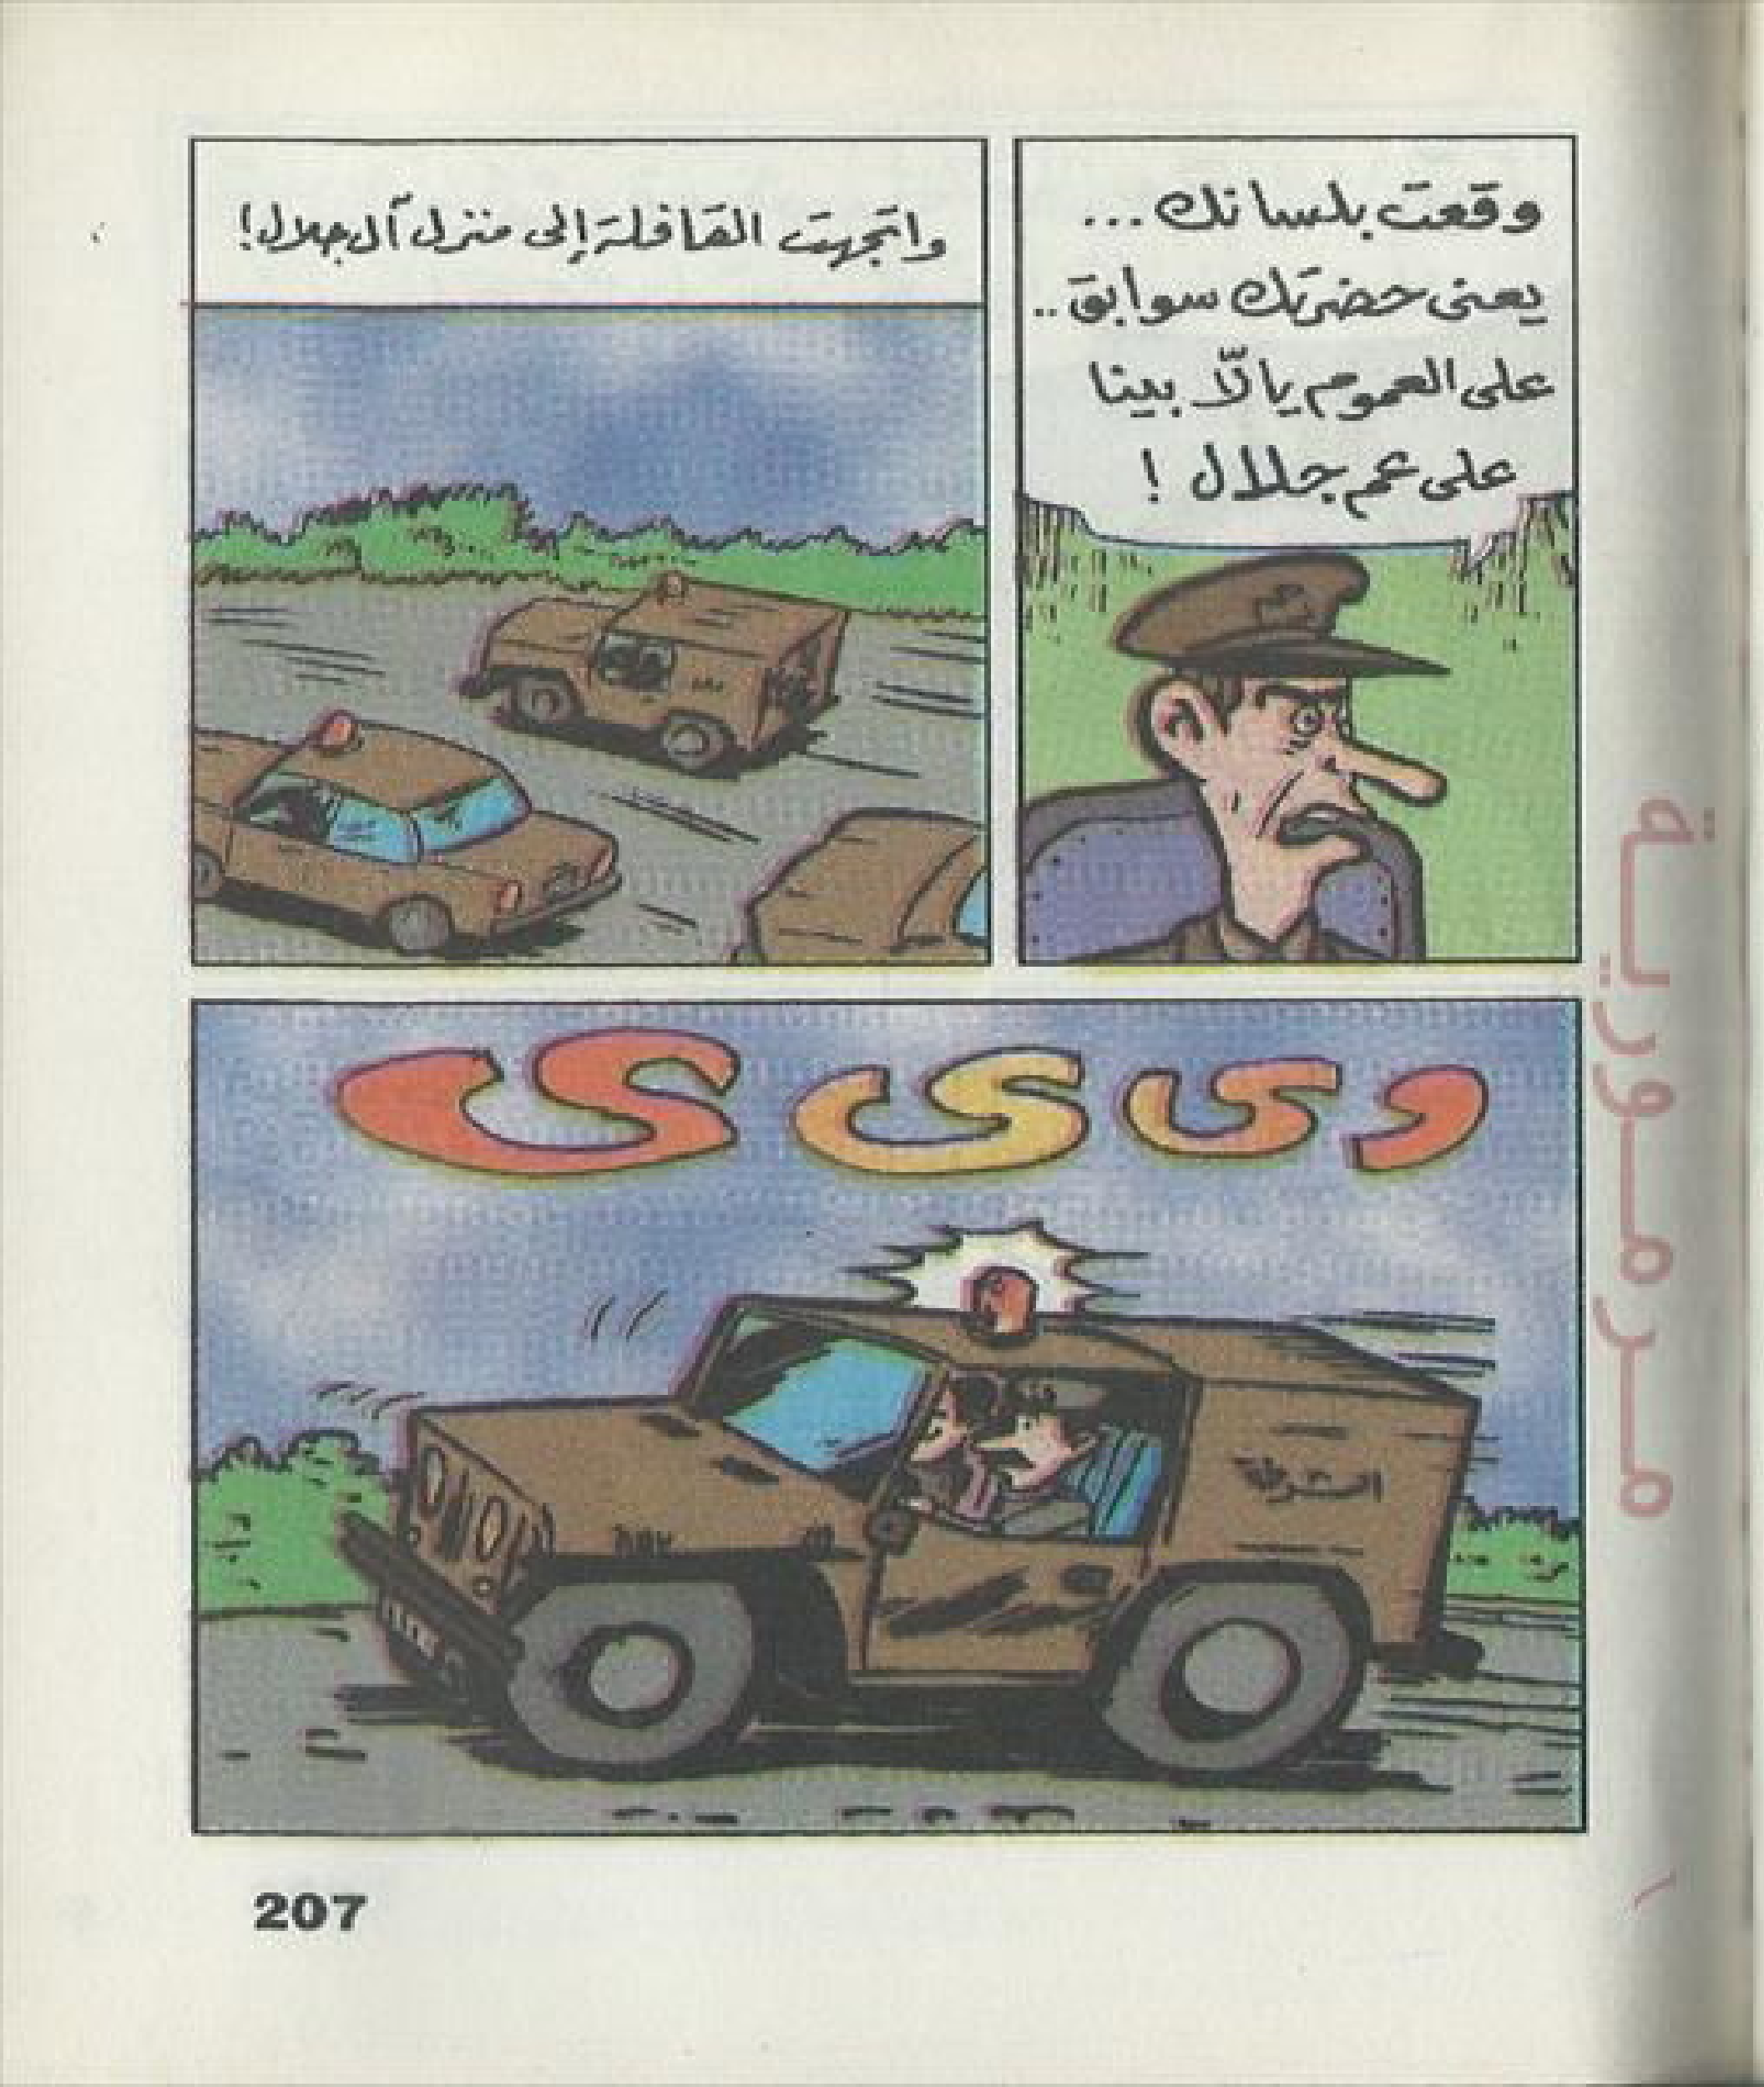 وقعت بلسانك ...
يعنى حضرتك سوابق ..
على العموم يالّا بينا
على عم جلال !
واتجهت القافلة إلى منزل آل جلال !
وى ى ى
الشرطة
مرمورية
207